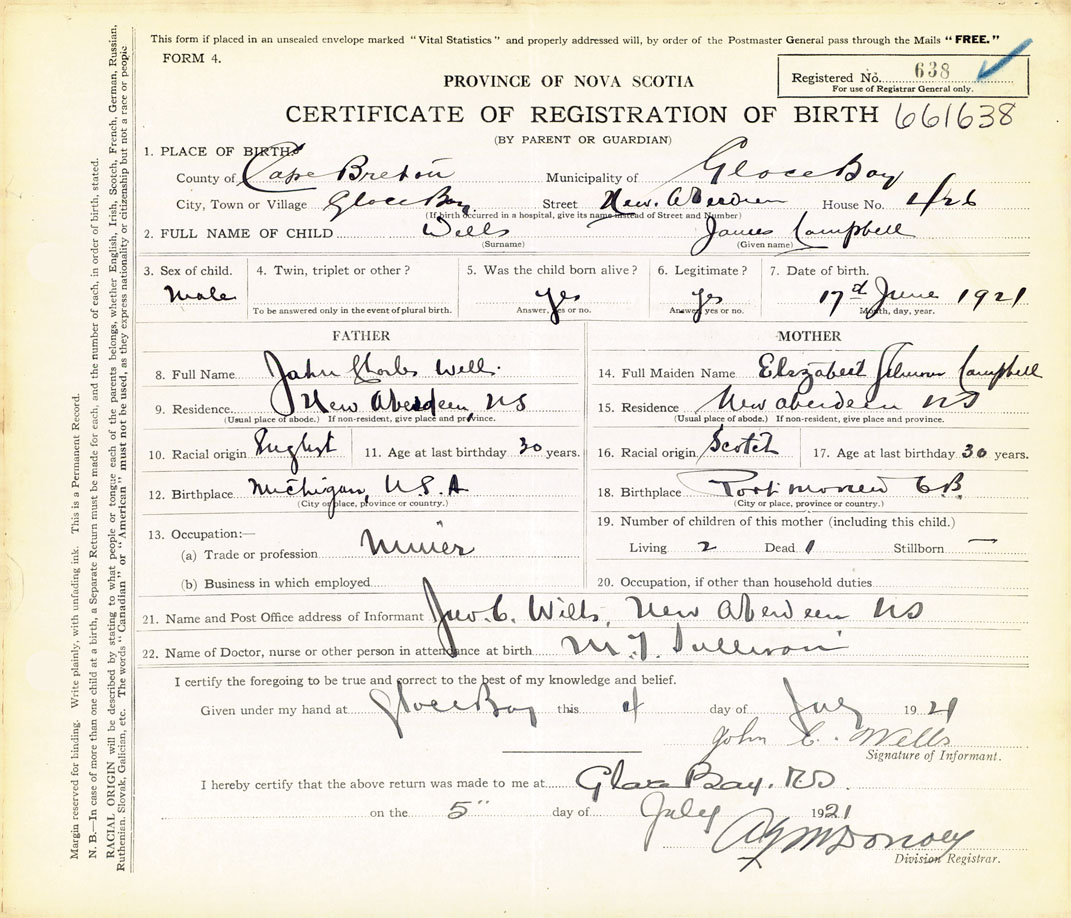 This form if placed in an unsealed envelope marked "Vital Statistics" and properly addressed will, by order of the Postmaster General pass through the Mails "FREE."
FORM 4.
Registered No. 638
For use of Registrar General only.
PROVINCE OF NOVA SCOTIA
CERTIFICATE OF REGISTRATION OF BIRTH 661638
(BY PARENT OR GUARDIAN)
1. PLACE OF BIRTH:
County of Cape Breton Municipality of Glace Bay
City, Town or Village Glace Bay Street New Aberdeen House No. 426
(If birth occurred in a hospital, give its name instead of Street and Number)
2. FULL NAME OF CHILD Wells James Campbell
(Surname) (Given name)
3. Sex of child. 4. Twin, triplet or other? 5. Was the child born alive? 6. Legitimate? 7. Date of birth.
Male yes yes 17th June 1921
To be answered only in the event of plural birth. Answer, yes or no. Answer, yes or no. Month, day, year.
FATHER
8. Full Name John Charles Wells
9. Residence New Aberdeen, NS
(Usual place of abode.) If non-resident, give place and province.
10. Racial origin English 11. Age at last birthday 30 years.
12. Birthplace Michigan, U.S.A
(City or place, province or country.)
13. Occupation:—
(a) Trade or profession Miner
(b) Business in which employed
MOTHER
14. Full Maiden Name Elizabeth Campbell
15. Residence New Aberdeen NS
(Usual place of abode.) If non-resident, give place and province.
16. Racial origin Scotch 17. Age at last birthday 30 years.
18. Birthplace Port Morien C.B.
(City or place, province or country.)
19. Number of children of this mother (including this child.)
Living 2 Dead 1 Stillborn —
20. Occupation, if other than household duties
21. Name and Post Office address of Informant Jno. C. Wells, New Aberdeen NS
22. Name of Doctor, nurse or other person in attendance at birth M.T. Sullivan
I certify the foregoing to be true and correct to the best of my knowledge and belief.
Given under my hand at Glace Bay this 4 day of July 1921
John C. Wells
Signature of Informant.
I hereby certify that the above return was made to me at Glace Bay. N.S.
on the 5" day of July 1921
Division Registrar.
Margin reserved for binding. Write plainly, with unfading ink. This is a Permanent Record.
N. B.—In case of more than one child at a birth, a Separate Return must be made for each, and the number of each, in order of birth, stated.
RACIAL ORIGIN will be described by stating to what people or tongue each of the parents belongs, whether English, Irish, Scotch, French, German, Russian,
Ruthenian, Slovak, Galician, etc. The words "Canadian" or "American" must not be used, as they express nationality or citizenship but not a race or people